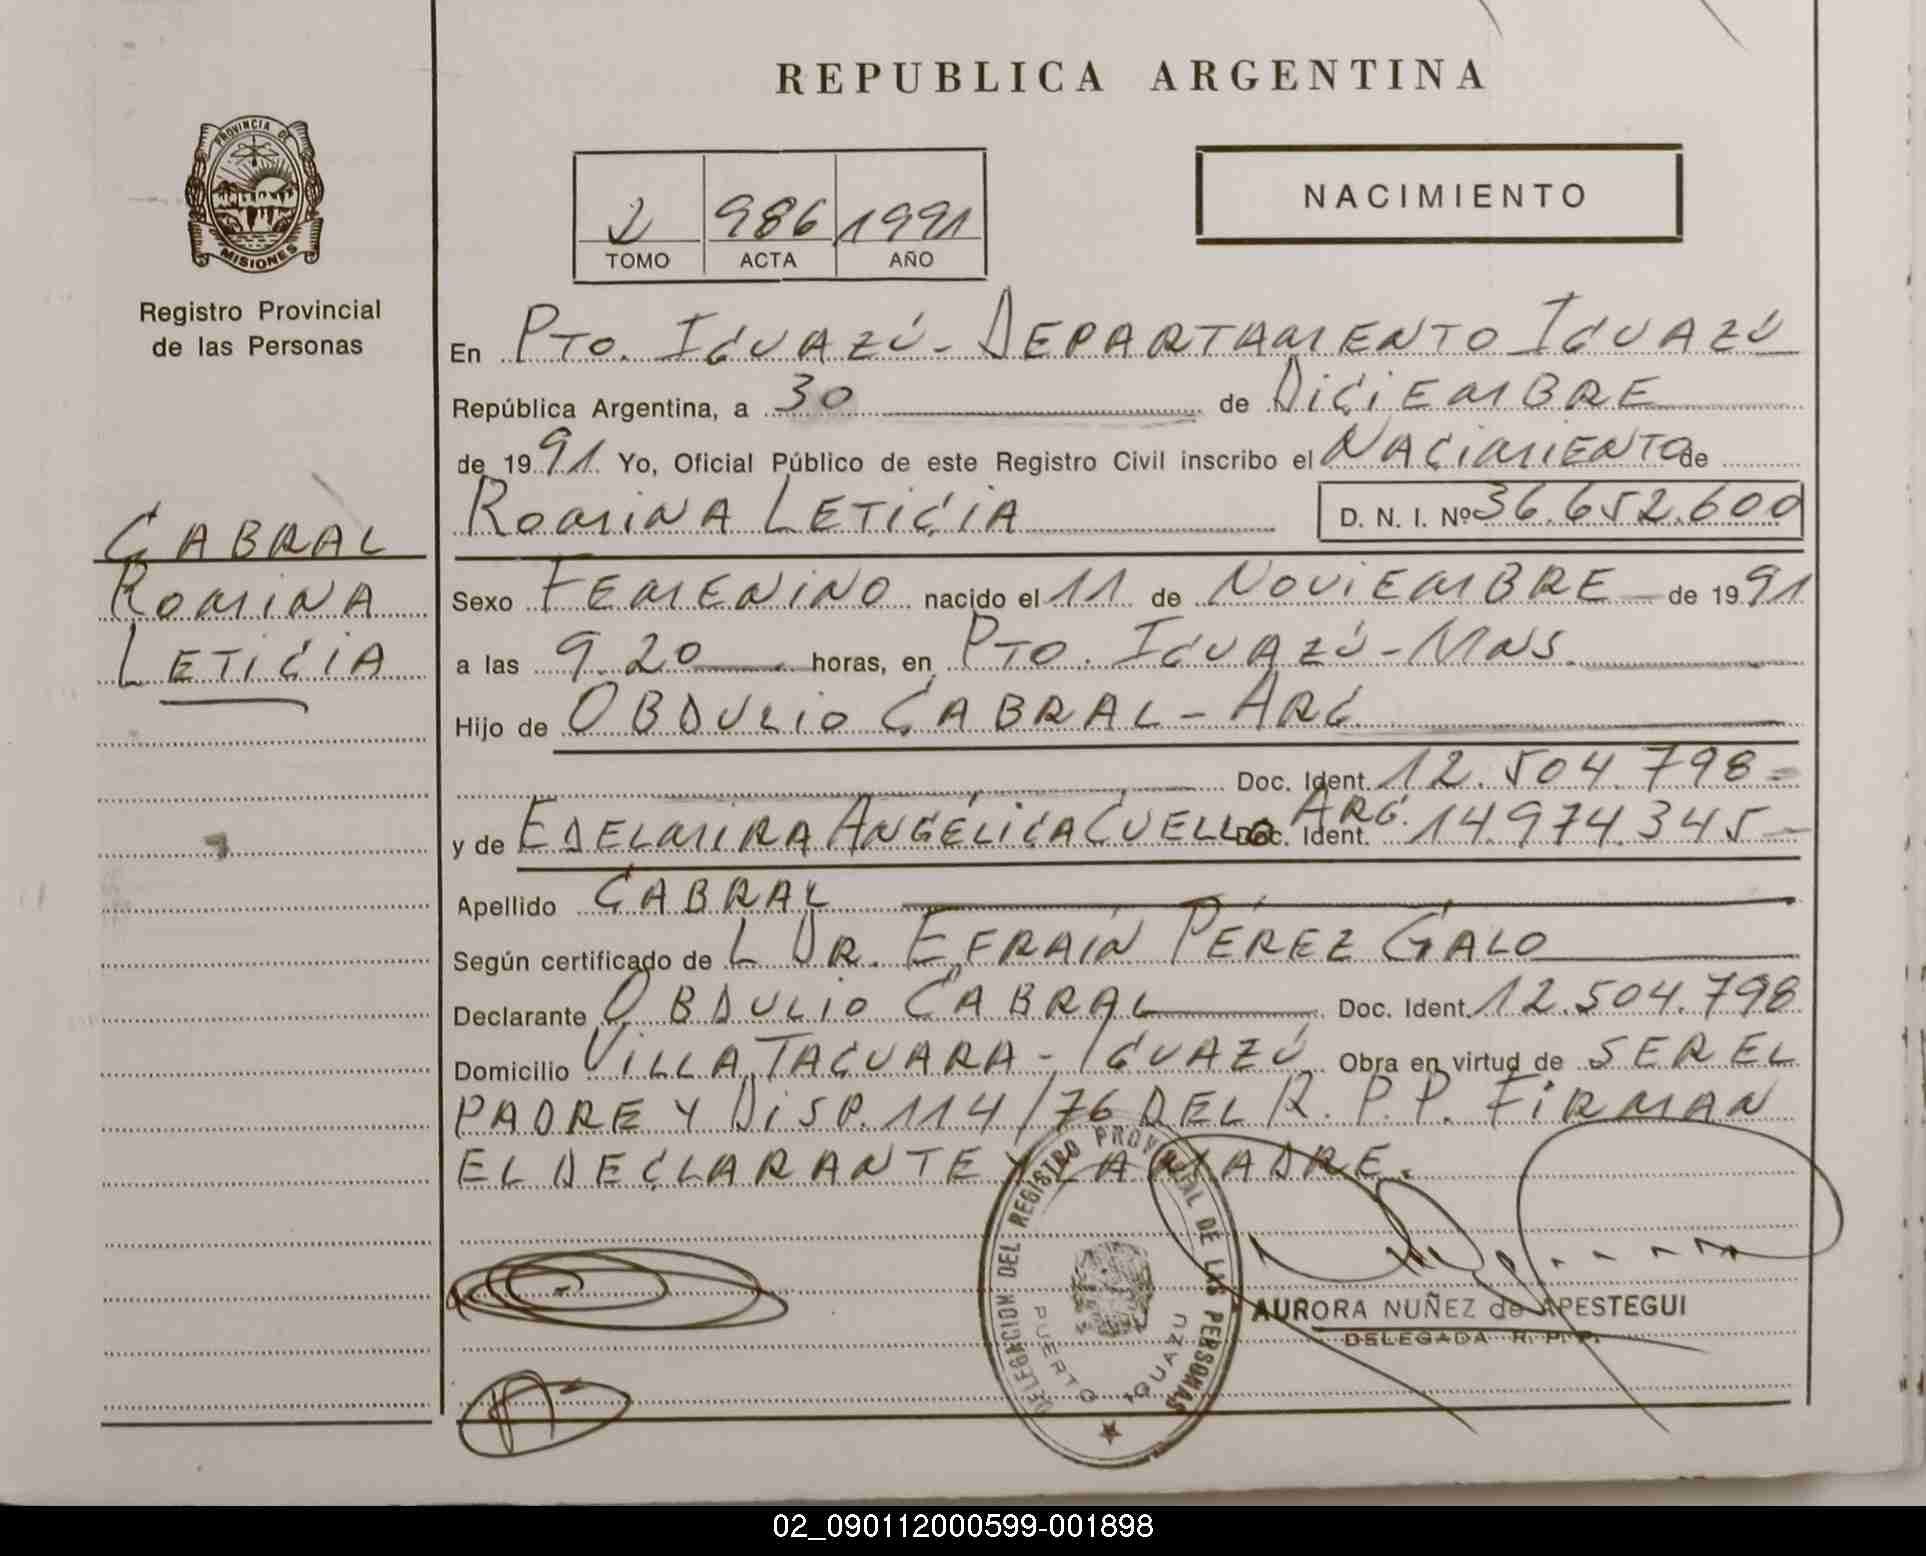 REPUBLICA ARGENTINA
PROVINCIA DE
MISIONES
Registro Provincial
de las Personas
2 986 1991
TOMO ACTA AÑO
NACIMIENTO
En PTO. IGUAZÚ - DEPARTAMENTO IGUAZÚ
República Argentina, a 30 de DICIEMBRE
de 1991 Yo, Oficial Público de este Registro Civil inscribo el NACIMIENTO de
ROMINA LETICIA D. N. I. Nº 36.652.600
CABRAL
ROMINA
LETICIA
Sexo FEMENINO nacido el 11 de NOVIEMBRE de 1991
a las 9.20 horas, en PTO. IGUAZÚ - MNS.
Hijo de OBDULIO CABRAL - ARG.
Doc. Ident. 12.504.798
y de EDELMIRA ANGÉLICA CUELLO ARG. Doc. Ident. 14.974.345
Apellido CABRAL
Según certificado de L DR. EFRAÍN PÉREZ GALO
Declarante OBDULIO CABRAL Doc. Ident. 12.504.798
Domicilio VILLA TACUARA - IGUAZÚ Obra en virtud de SER EL
PADRE Y DISP. 114/76 DEL R. P. P. FIRMAN
EL DECLARANTE Y LA MADRE.
DELEGACION DEL REGISTRO PROVINCIAL DE LAS PERSONAS
PUERTO IGUAZU
AURORA NUÑEZ de APESTEGUI
DELEGADA R. P. P.
02_090112000599-001898